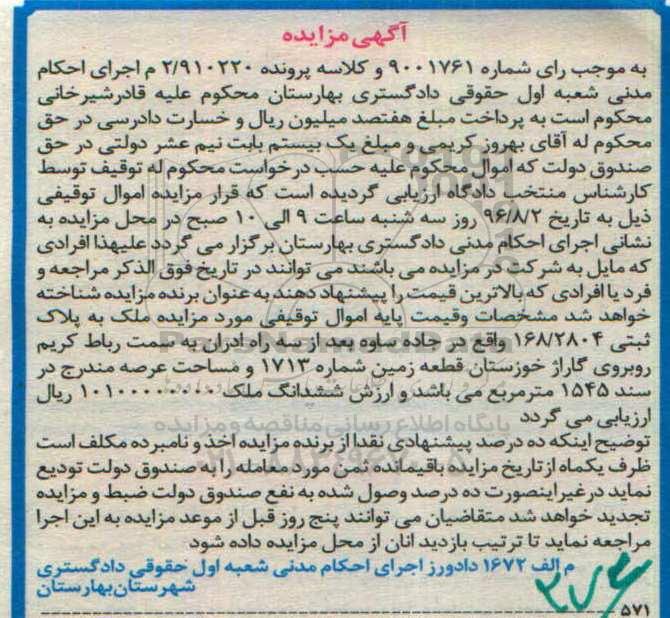 آگهی مزایده
به موجب رای شماره ۹۰۰۱۷۶۱ و کلاسه پرونده ۲/۹۱۰۲۲۰ م اجرای احکام
مدنی شعبه اول حقوقی دادگستری بهارستان محکوم علیه قادرشیرخانی
محکوم است به پرداخت مبلغ هفتصد میلیون ریال و خسارت دادرسی در حق
محکوم له آقای بهروز کریمی و مبلغ یک بیستم بابت نیم عشر دولتی در حق
صندوق دولت که اموال محکوم علیه حسب درخواست محکوم له توقیف توسط
کارشناس منتخب دادگاه ارزیابی گردیده است که قرار مزایده اموال توقیفی
ذیل به تاریخ ۹۶/۸/۲ روز سه شنبه ساعت ۹ الی ۱۰ صبح در محل مزایده به
نشانی اجرای احکام مدنی دادگستری بهارستان برگزار می گردد علیهذا افرادی
که مایل به شرکت در مزایده می باشند می توانند در تاریخ فوق الذکر مراجعه و
فرد یا افرادی که بالاترین قیمت را پیشنهاد دهند به عنوان برنده مزایده شناخته
خواهد شد مشخصات وقیمت پایه اموال توقیفی مورد مزایده ملک به پلاک
ثبتی ۱۶۸/۲۸۰۴ واقع در جاده ساوه بعد از سه راه ادران به سمت رباط کریم
روبروی گاراژ خوزستان قطعه زمین شماره ۱۷۱۳ و مساحت عرصه مندرج در
سند ۱۵۴۵ مترمربع می باشد و ارزش ششدانگ ملک ریال
ارزیابی می گردد
پایگاه اطلاع رسانی مناقصه و مزایده
توضیح اینکه ده درصد پیشنهادی نقدا از برنده مزایده اخذ و نامبرده مکلف است
ظرف یکماه از تاریخ مزایده باقیمانده ثمن مورد معامله را به صندوق دولت تودیع
نماید در غیر اینصورت ده درصد وصول شده به نفع صندوق دولت ضبط و مزایده
تجدید خواهد شد متقاضیان می توانند پنج روز قبل از موعد مزایده به این اجرا
مراجعه نماید تا ترتیب بازدید انان از محل مزایده داده شود
م الف ۱۶۷۲ دادورز اجرای احکام مدنی شعبه اول حقوقی دادگستری
شهرستان بهارستان
۵۷۱